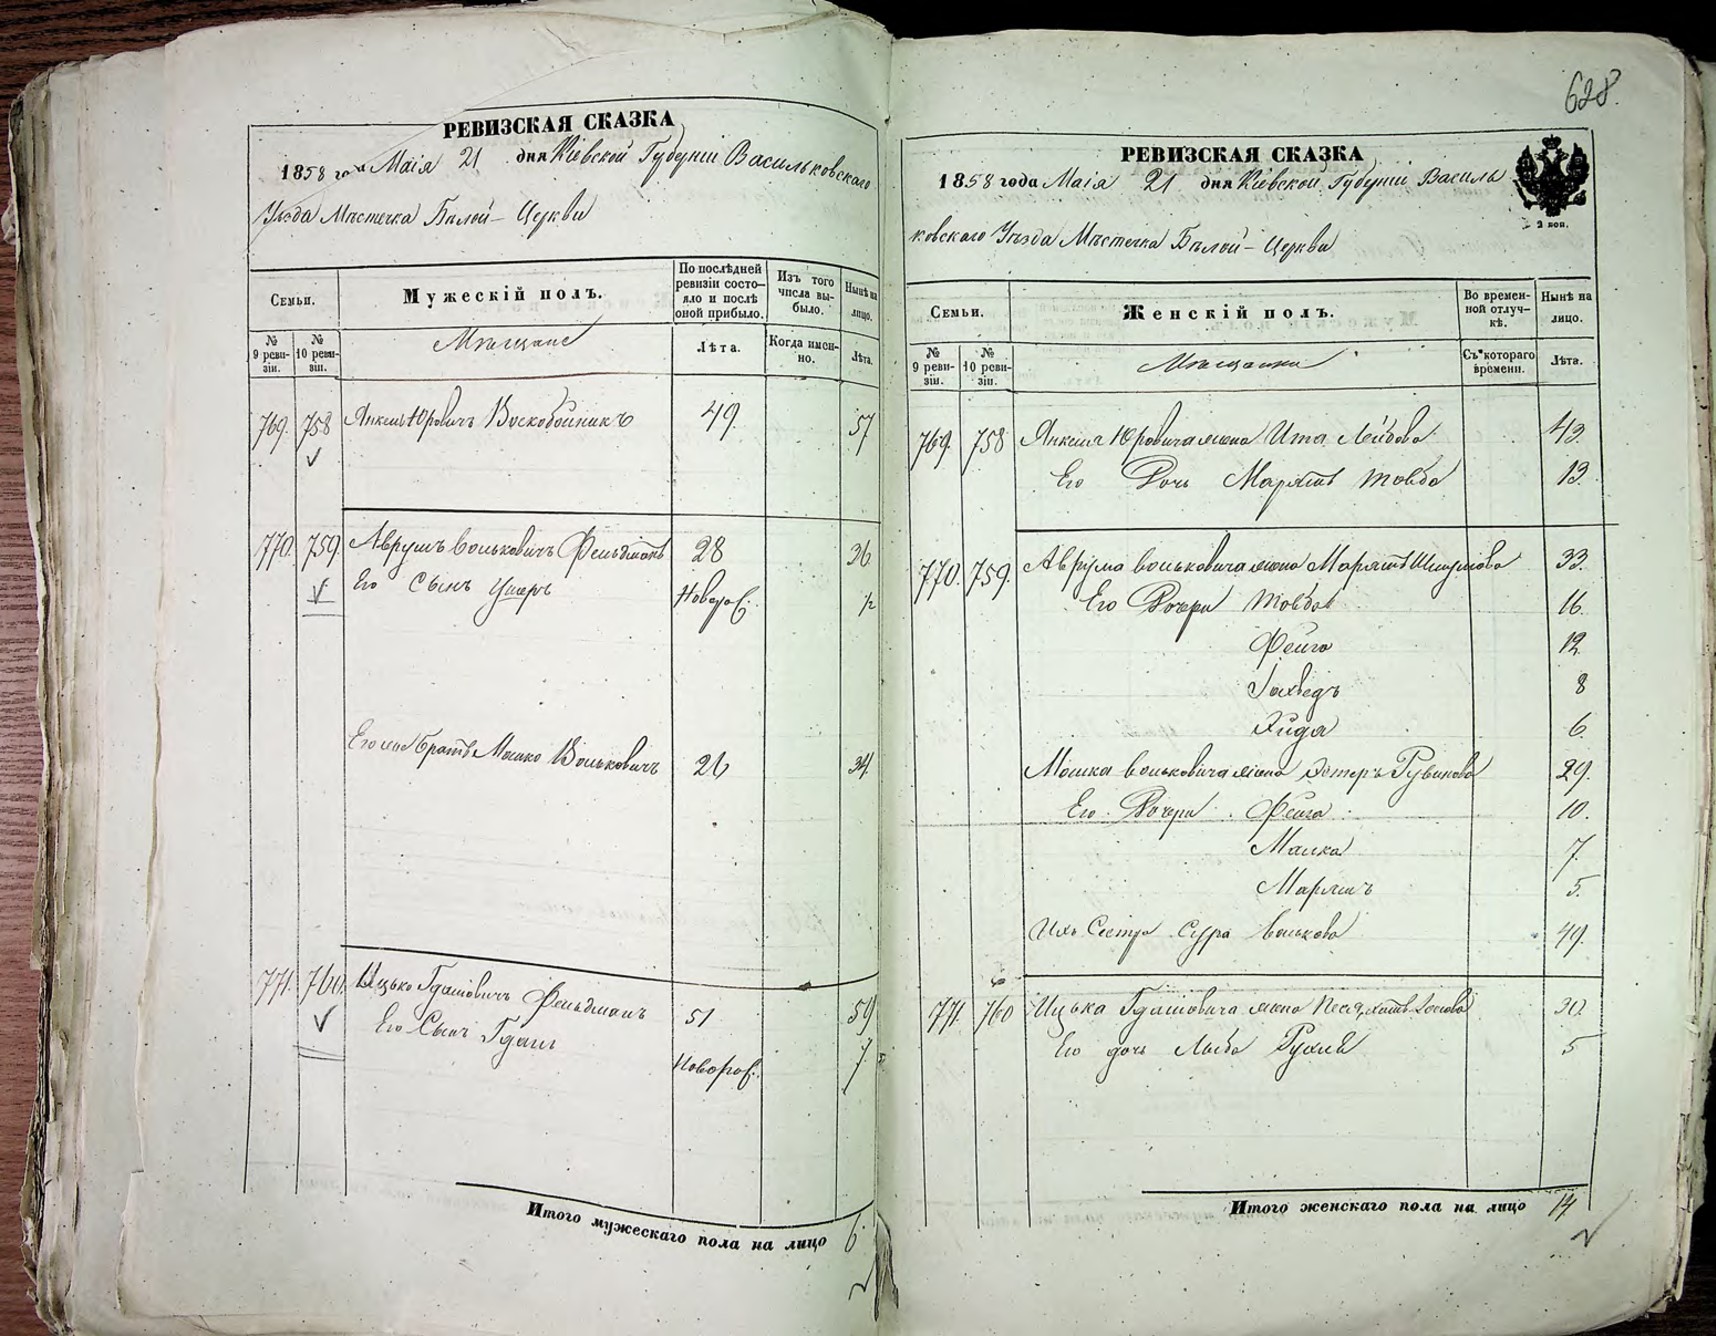 РЕВИЗСКАЯ СКАЗКА
1858 года Маія 21 дня Кіевской Губерніи Васильковскаго
Уезда Мѣстечка Бѣлой-Церкви
Семьи.
Мужескій полъ.
По послѣдней ревизіи состояло и послѣ оной прибыло.
Изъ того числа выбыло.
Нынѣ на лицо.
№ 9 ревизіи.
№ 10 ревизіи.
Мѣщане
Лѣта.
Когда именно.
Лѣта.
769. 758 Янкель Юровичъ Воскобойникъ 49. 57
770. 759. Аврумъ Вольковичъ Фельдманъ 28 36
Его Сынъ Ушеръ Новорож. 1/2
Его же братъ Мошко Вольковичъ 26 34.
771. 760. Ицько Гдаліовичъ Фельдманъ 51 59
Его Сынъ Гдаль Новорож. 7.
Итого мужескаго пола на лицо 6
628.
РЕВИЗСКАЯ СКАЗКА
1858 года Маія 21 дня Кіевской Губерніи Василь
2 коп.
ковскаго Уѣзда Мѣстечка Бѣлой-Церкви
Семьи.
Женскій полъ.
Во временной отлучкѣ.
Нынѣ на лицо.
№ 9 ревизіи.
№ 10 ревизіи.
Мѣщанки
Съ котораго времени.
Лѣта.
769. 758 Янкеля Юровича жена Ита Лейбова 43.
Его Дочь Марямъ Товба 13.
770. 759. Аврума Вольковича жена Марямъ Шмулова 33.
Его Дочери Товба 16.
Фейга 12.
Іохведъ 8
Хида 6
Мошка Вольковича жена Эстеръ Рувинова 29.
Его Дочери Фейга 10.
Малка 7.
Марямъ 5.
Ихъ Сестра Сура Волькова 49.
771. 760 Ицька Гдаліовича жена Песя 30.
Его дочь Лыба Рухля 5
Итого женскаго пола на лицо 14